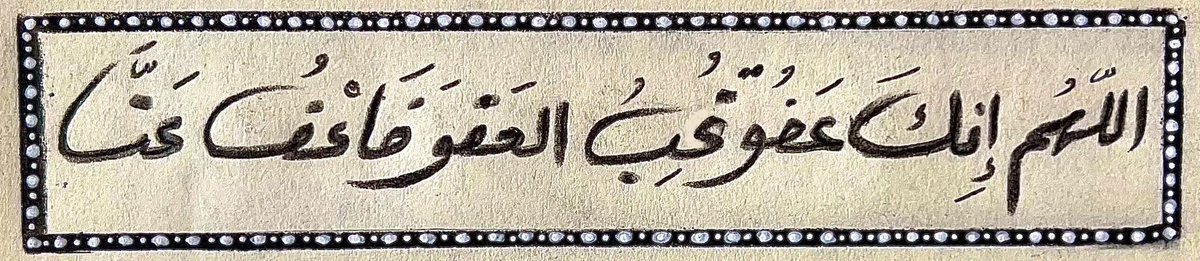 اللهُم إِنكَ عَفُوٌّ تُحِبُ العَفوَ فَاعْفُ عَنَّا